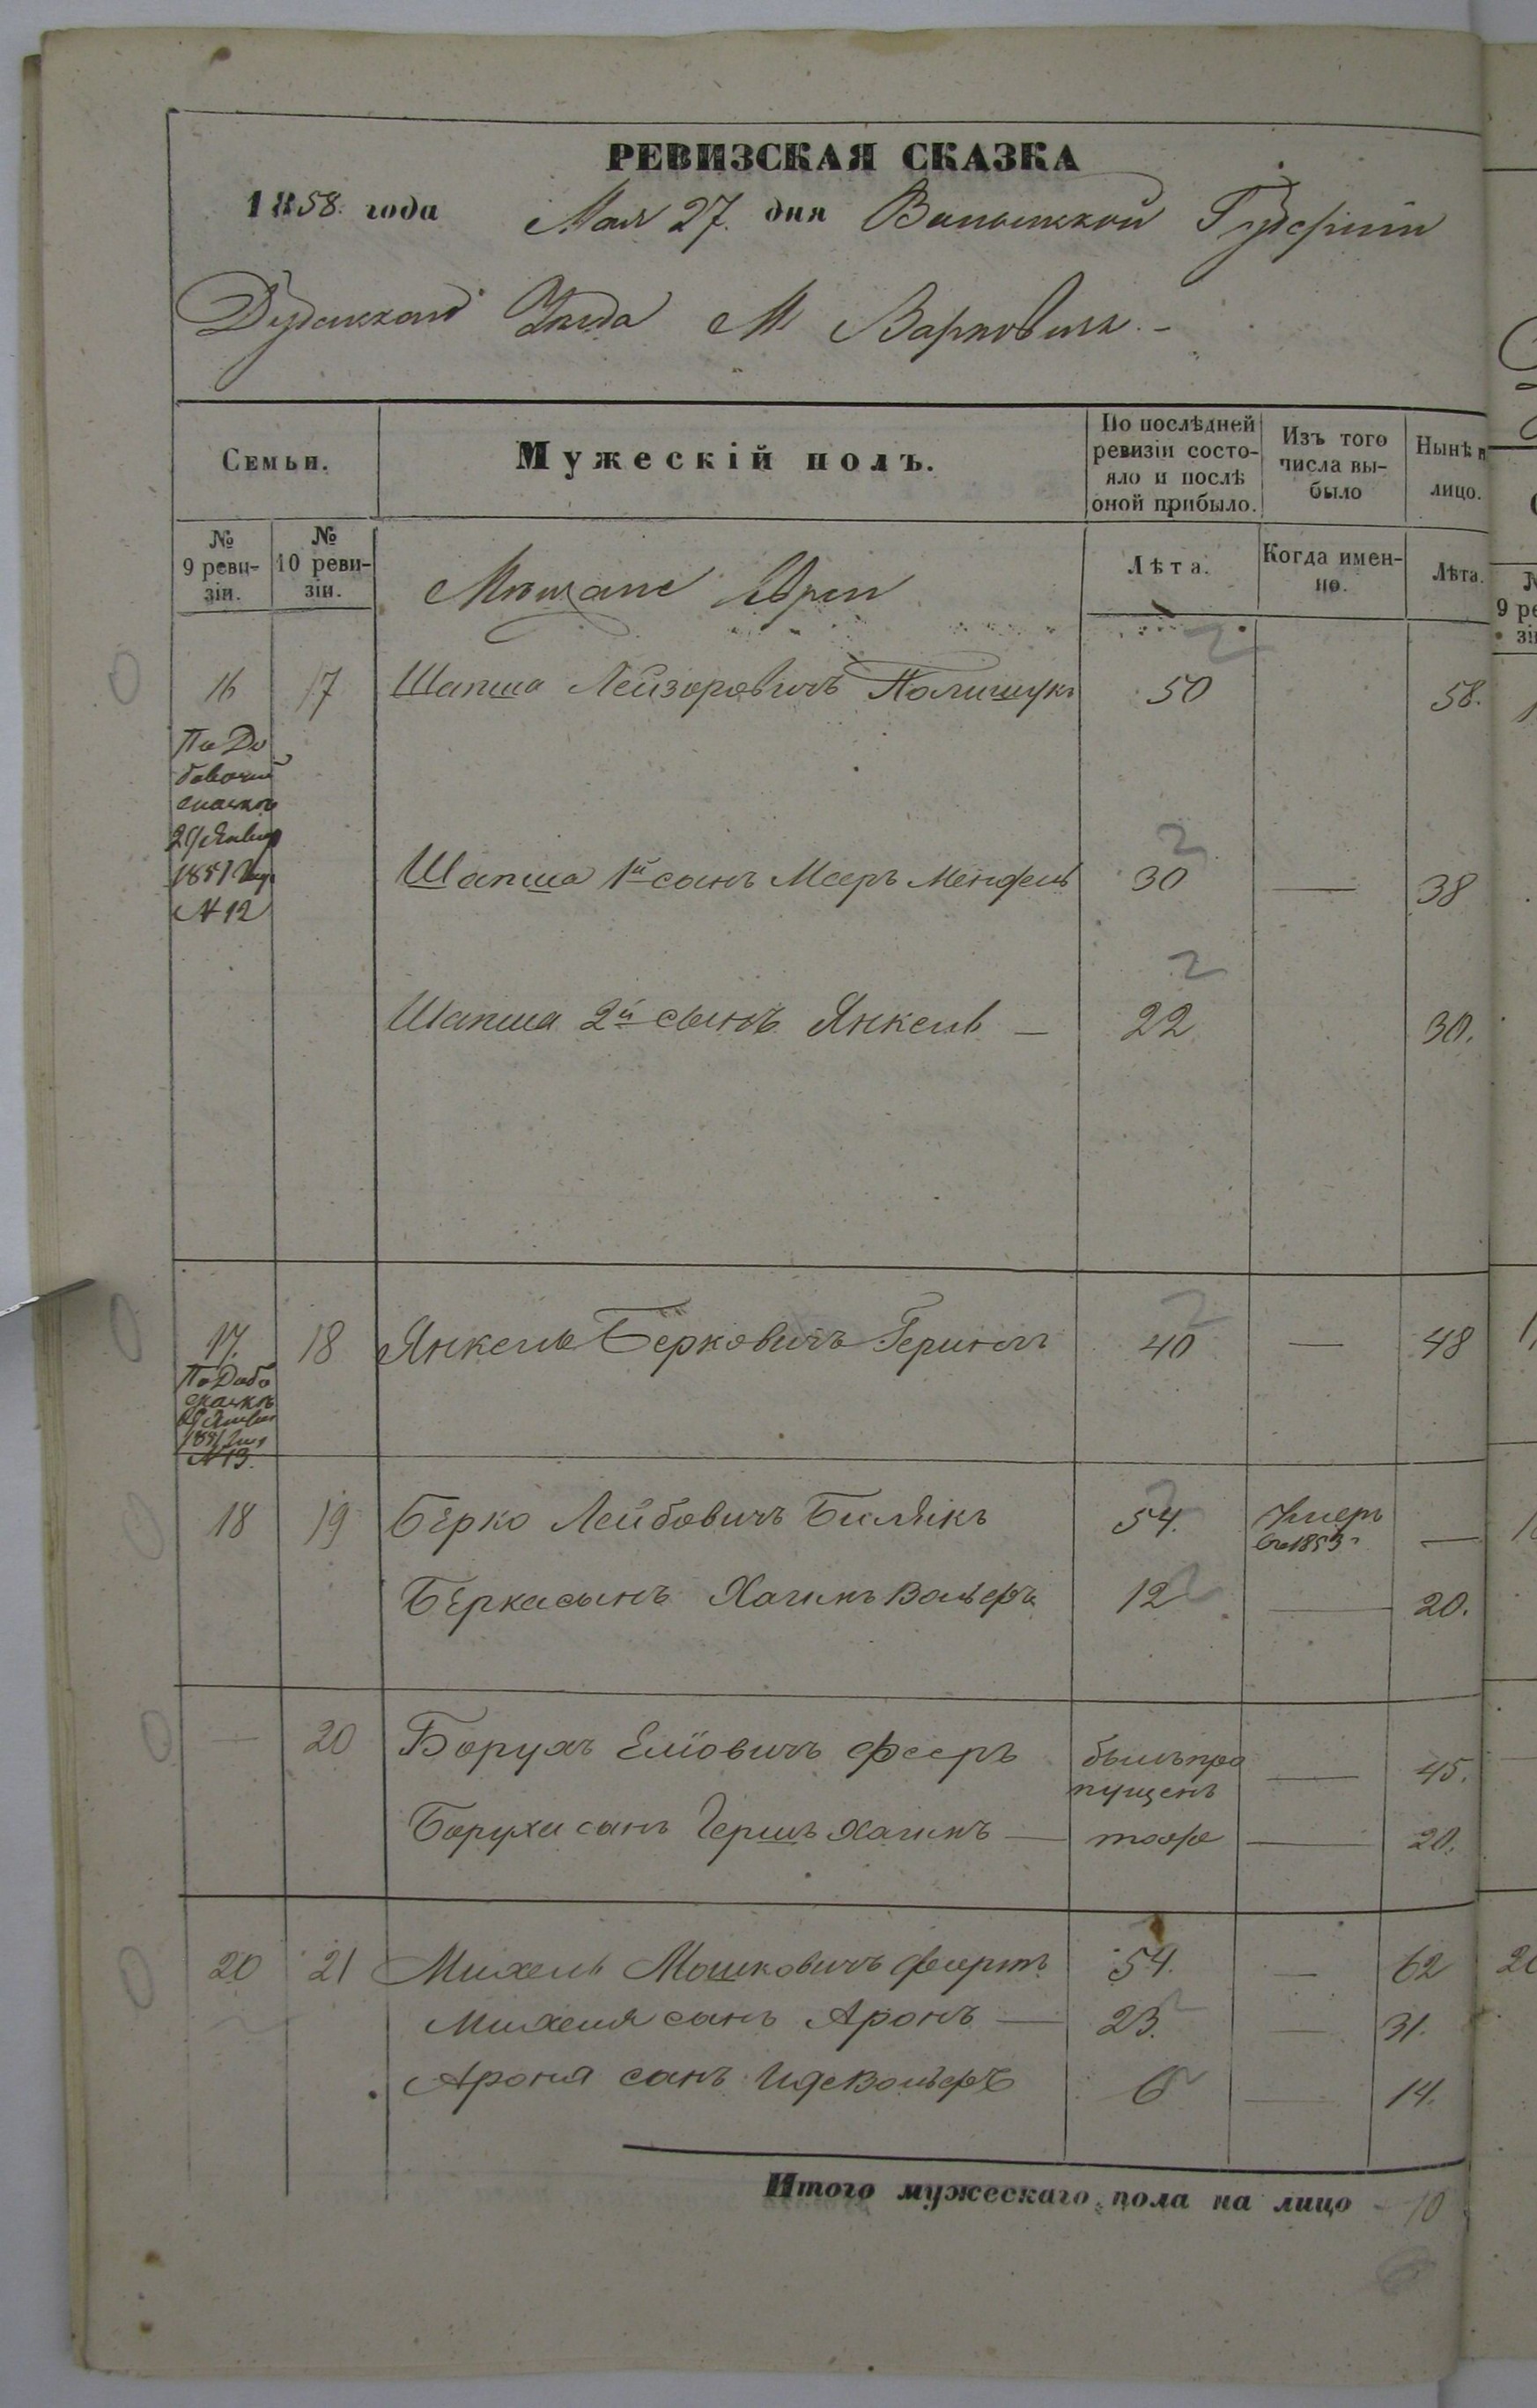 РЕВИЗСКАЯ СКАЗКА
1858. года Мая 27. дня Волынской Губерніи
Дубенскаго Уѣзда М Варковичь.-
Семьи. Мужескій полъ. По послѣдней ревизіи состо- яло и послѣ оной прибыло. Изъ того числа вы- было Нынѣ лицо.
№ 9 реви- зіи. № 10 реви- зіи. Лѣта. Когда имен- но. Лѣта.
Мѣщане Евреи
16 17 Шапша Лейзоровичъ Полищукъ 50 58.
По До
бавочной
сказкѣ
1851
№ 12
Шапша 1й сынъ Мееръ Мендель 30 — 38
Шапша 2й сынъ Янкель — 22 30.
17. 18 Янкель Берковичъ 40 — 48
По Доба
сказкѣ
1851
№ 13.
18 19 Берко Лейбовичъ Билякъ 54. Умеръ 1853 —
Берка сынъ Хаимъ Вольфъ 12 — 20.
— 20 Борухъ Еліовичъ Фееръ былъ про пущенъ — 45.
Боруха сынъ Гершъ Хаимъ — тоже — 20.
20 21 Михель Мошковичъ 54. — 62
Михеля сынъ Аронъ — 23. — 31.
Арона сынъ Иде Вольфъ 6 — 14.
Итого мужескаго пола на лицо - 10